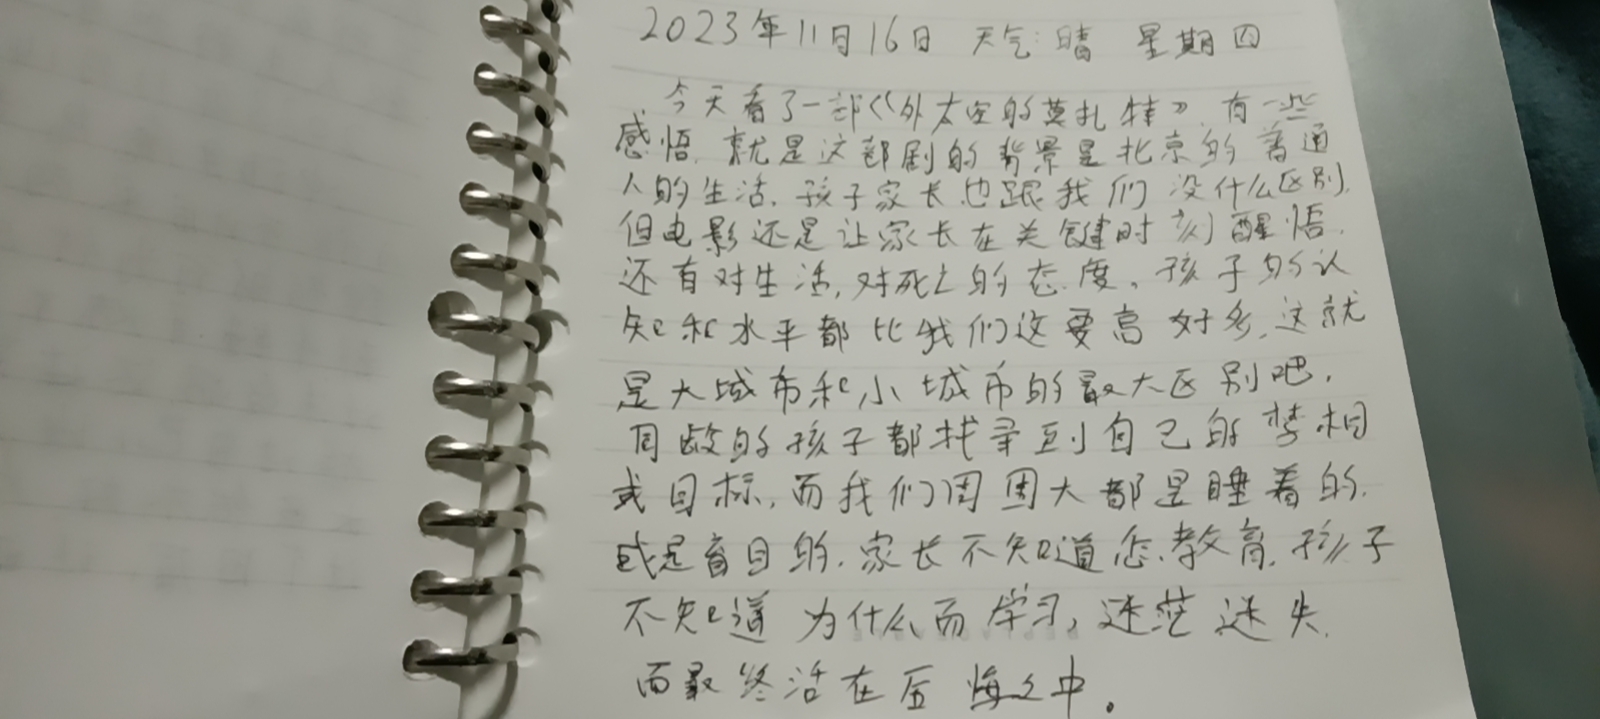 2023年11月16日 天气:晴 星期四
今天看了一部《外太空的莫扎特》,有一些
感悟.就是这部剧的背景是北京的普通
人的生活.孩子家长也跟我们没什么区别.
但电影还是让家长在关键时刻醒悟.
还有对生活,对死亡的态度。孩子的认
知和水平都比我们这要高好多.这就
是大城市和小城市的最大区别吧.
同龄的孩子都找寻到自己的梦想
或目标,而我们周围大都是睡着的.
或是盲目的.家长不知道怎教育.孩子
不知道为什么而学习,迷茫迷失.
而最终活在后悔之中。